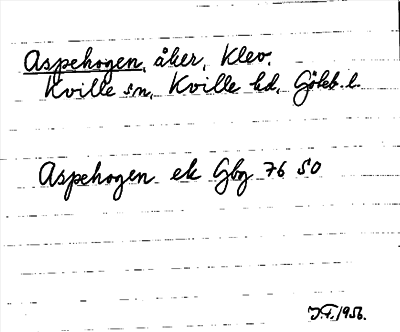 Aspehogen, åker, Klev.
Kville sn, Kville hd, Göteb. l.
Aspehogen ek Gbg 76 SO
J.F. 1956.